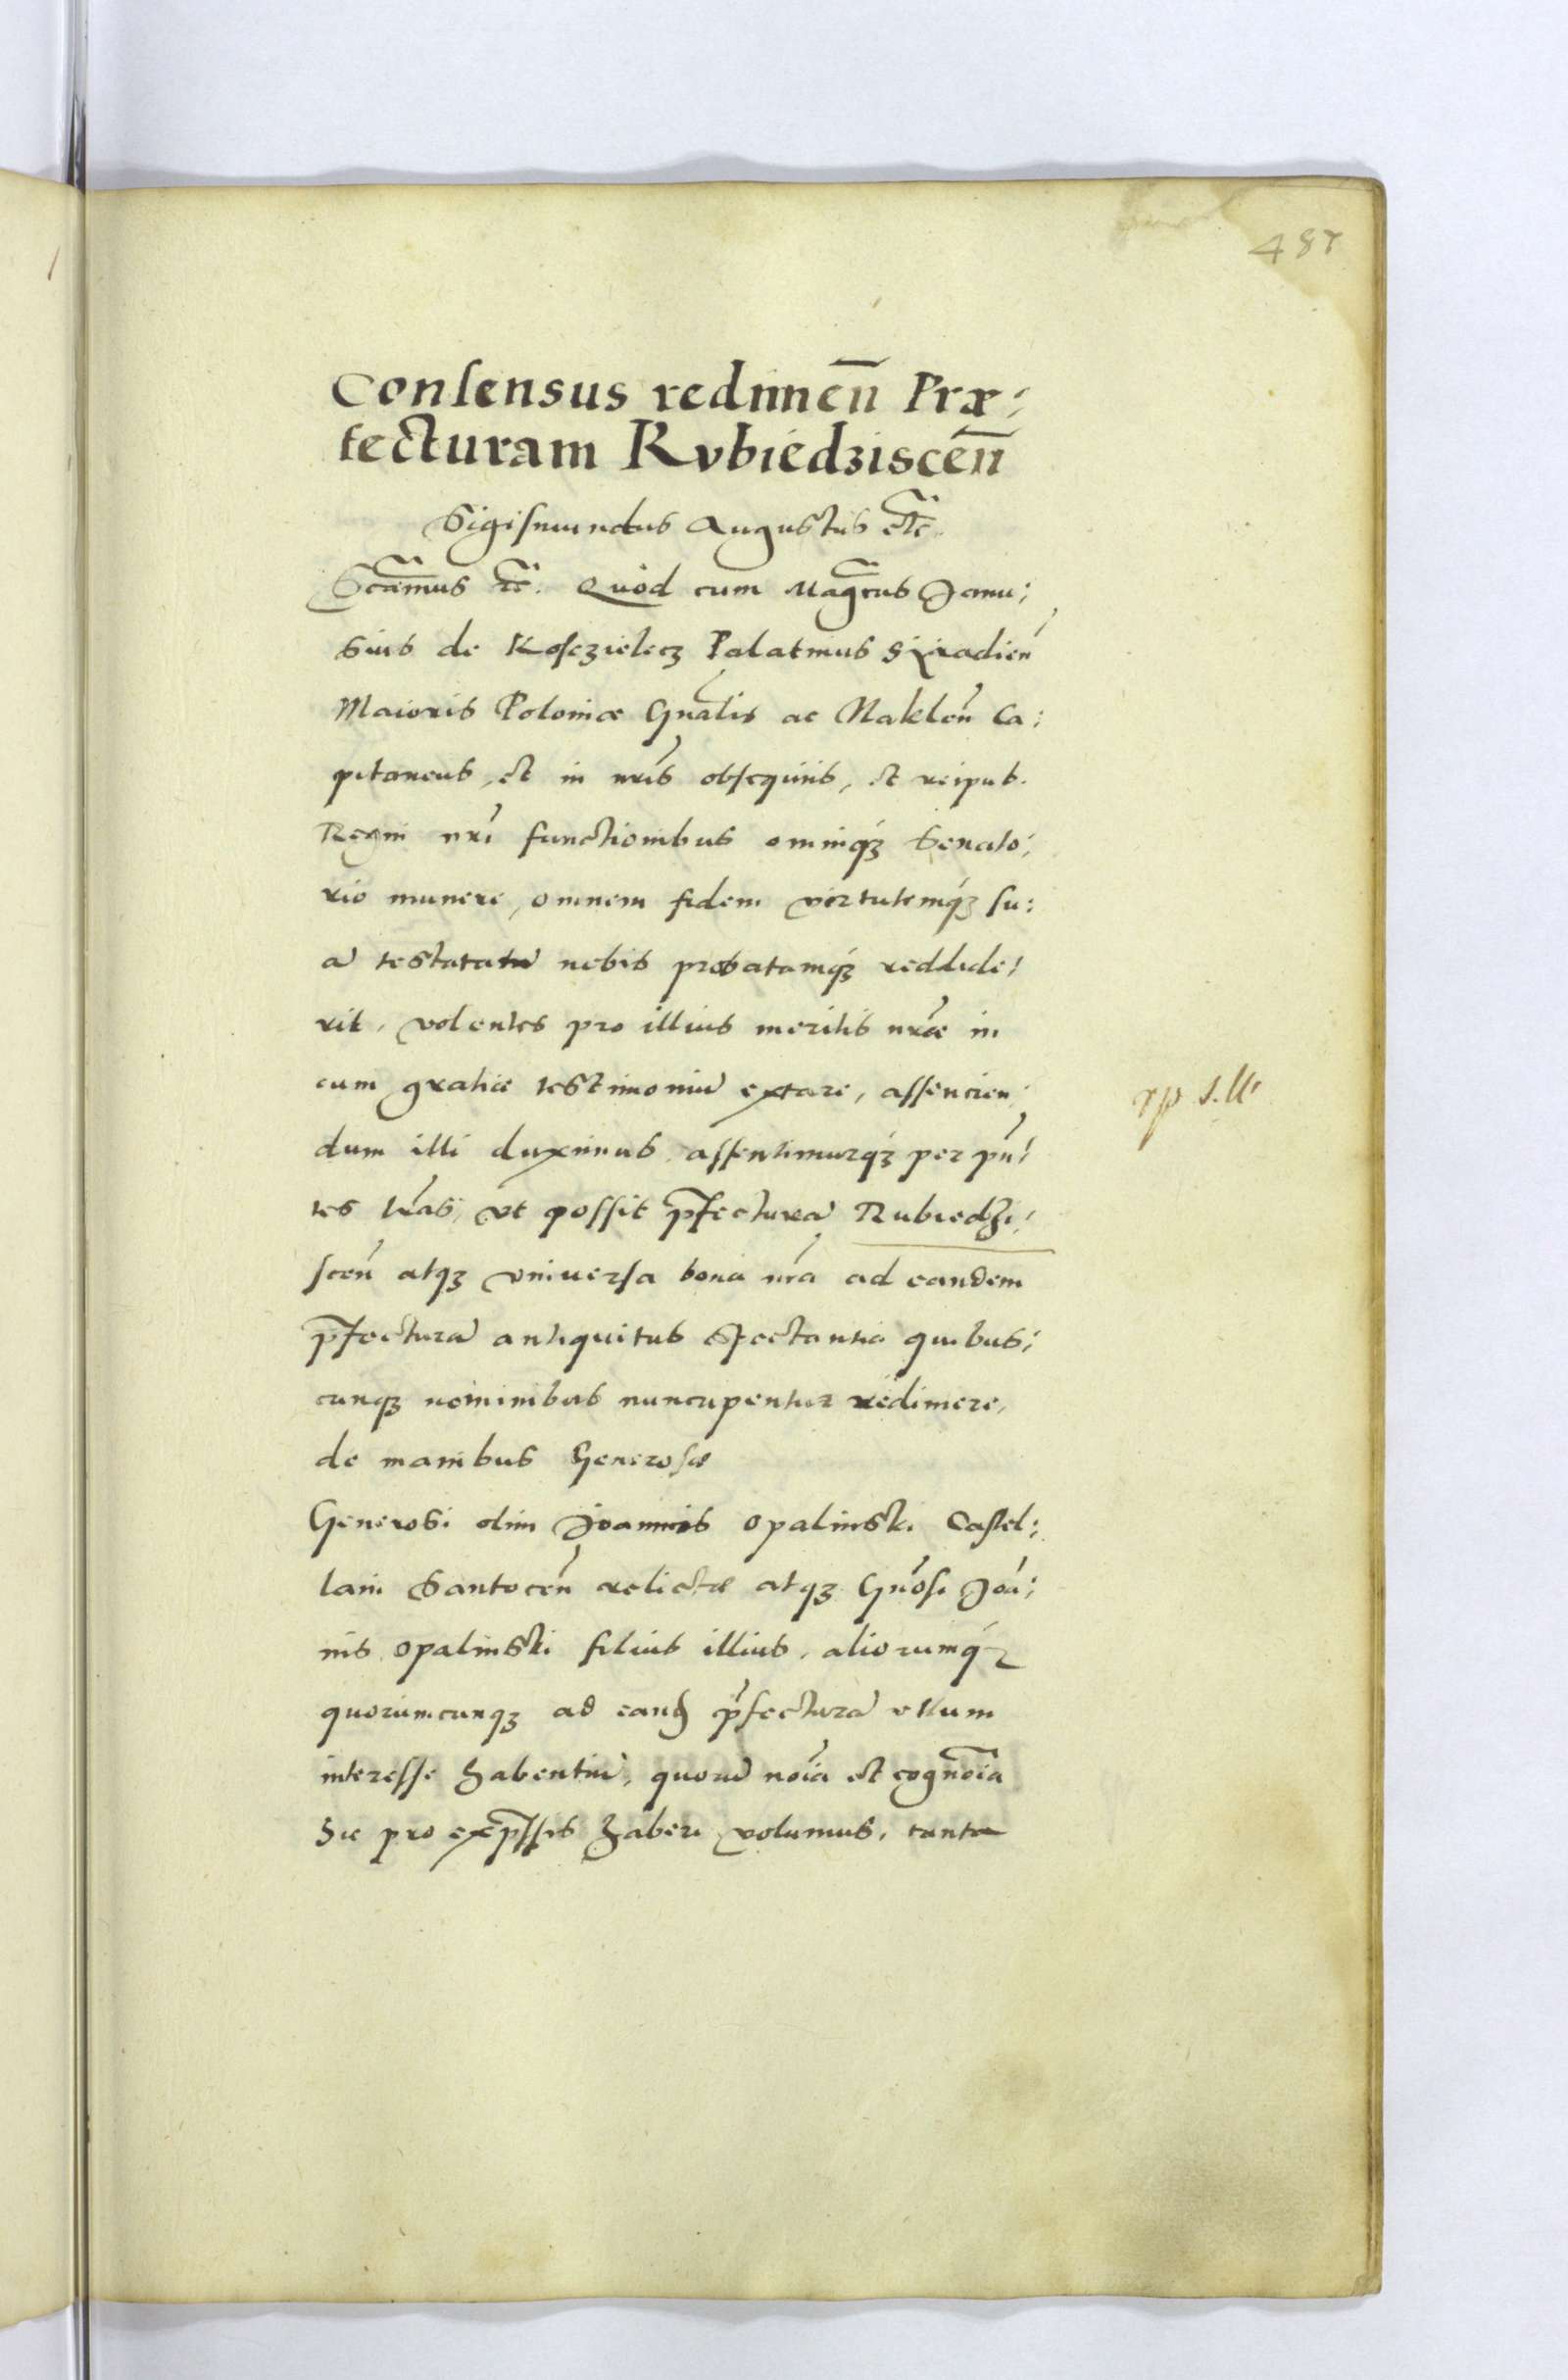 487
Consensus redimen̄ Præ:
fecturam Rvbiedziscen̄
Sigismundus Augustus etc.
Scamus etc. Quod cum Magcus Janu:
sius de Kosczielecz Palatinus Siradien̄
Maioris Poloniæ Gnalis ac Naklen̄ Ca:
pitaneus, et in nris obsequiis, et reipub.
Regni nri functionibus omniq́ȝ Senato:
rio munere, omnem fidem virtutemq́ȝ su:
ā testatatā nobis probatamq́ȝ reddide:
rit, volentes pro illius meritis nræ in
eum gratiæ testimoniū extare, assencien:
dum illi duximus assentimurq́ȝ per pn̄:
tes lras, vt possit p̄fecturā Rubiedzi:
scen̄ atqȝ vniuersa bona nrā ad eandem
p̄fecturā antiquitus spectantia quibus:
cunqȝ nominibus nuncupentur redimere,
de manibus Generosæ
Generosi olim Joannis Opalinski Castel:
lani Santocen̄ relictæ atqȝ Gnosi Joā:
nis Opalinski filius illius, aliorumq́ȝ
quorumcunqȝ ad eand p̄fecturā vllum
interesse habentiū, quorū noīa et cognoīa
hic pro exp̄ssis haberi volumus, tanta